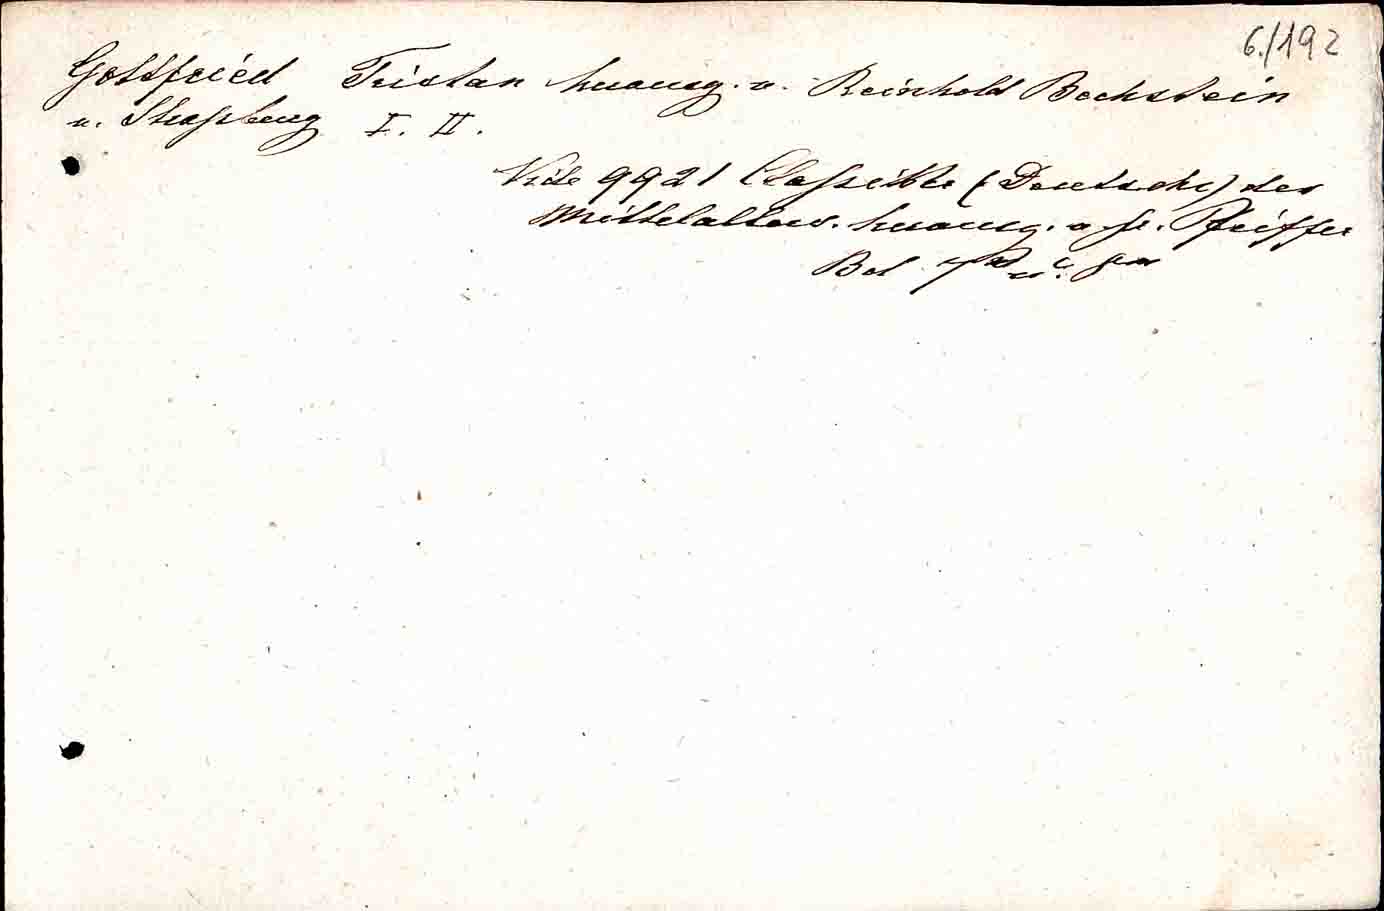 6./192
Gottfried Tristan herausg. v. Reinhold Bechstein
v. Straßburg I. II.
Vide 9921 Classiker (Deutsche) des
Mittelalters. herausg. v. Fr. Pfeiffer
Bd 7 u. 8